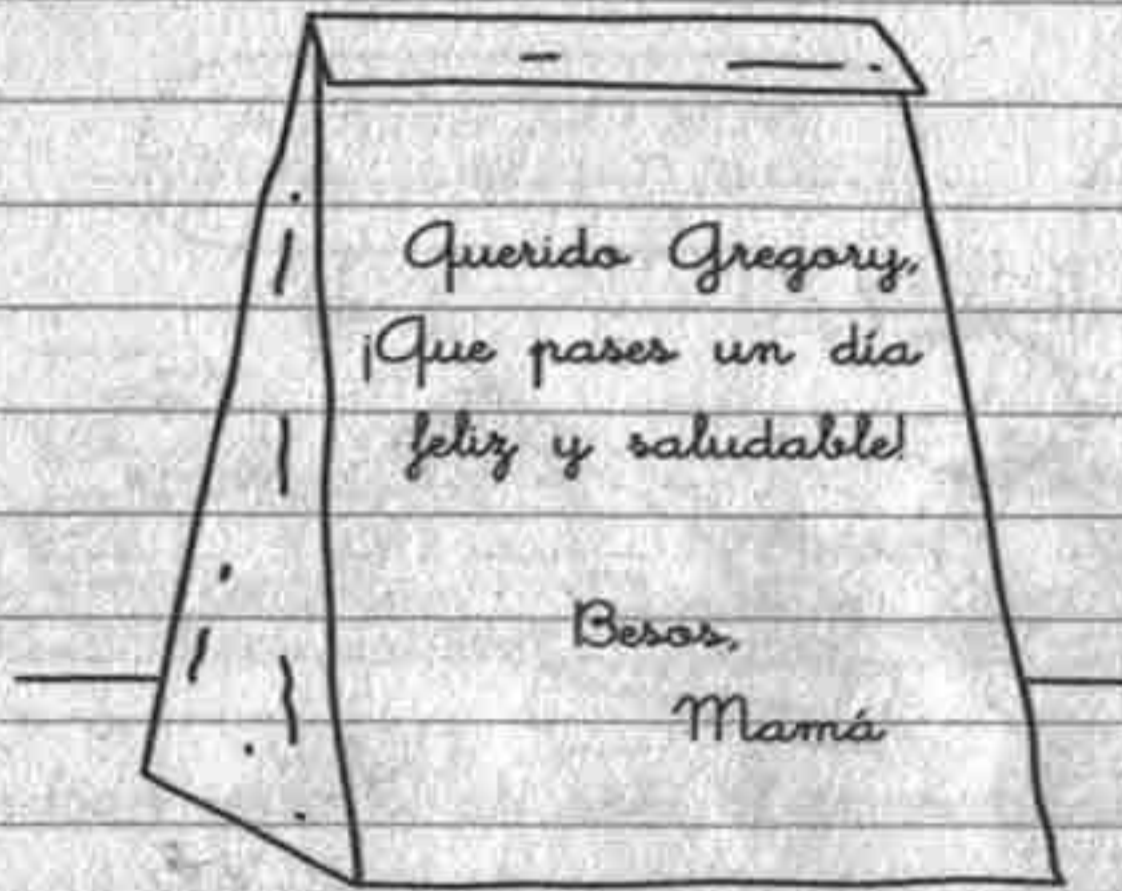 Querido Gregory,
¡Que pases un día
feliz y saludable!
Besos,
Mamá